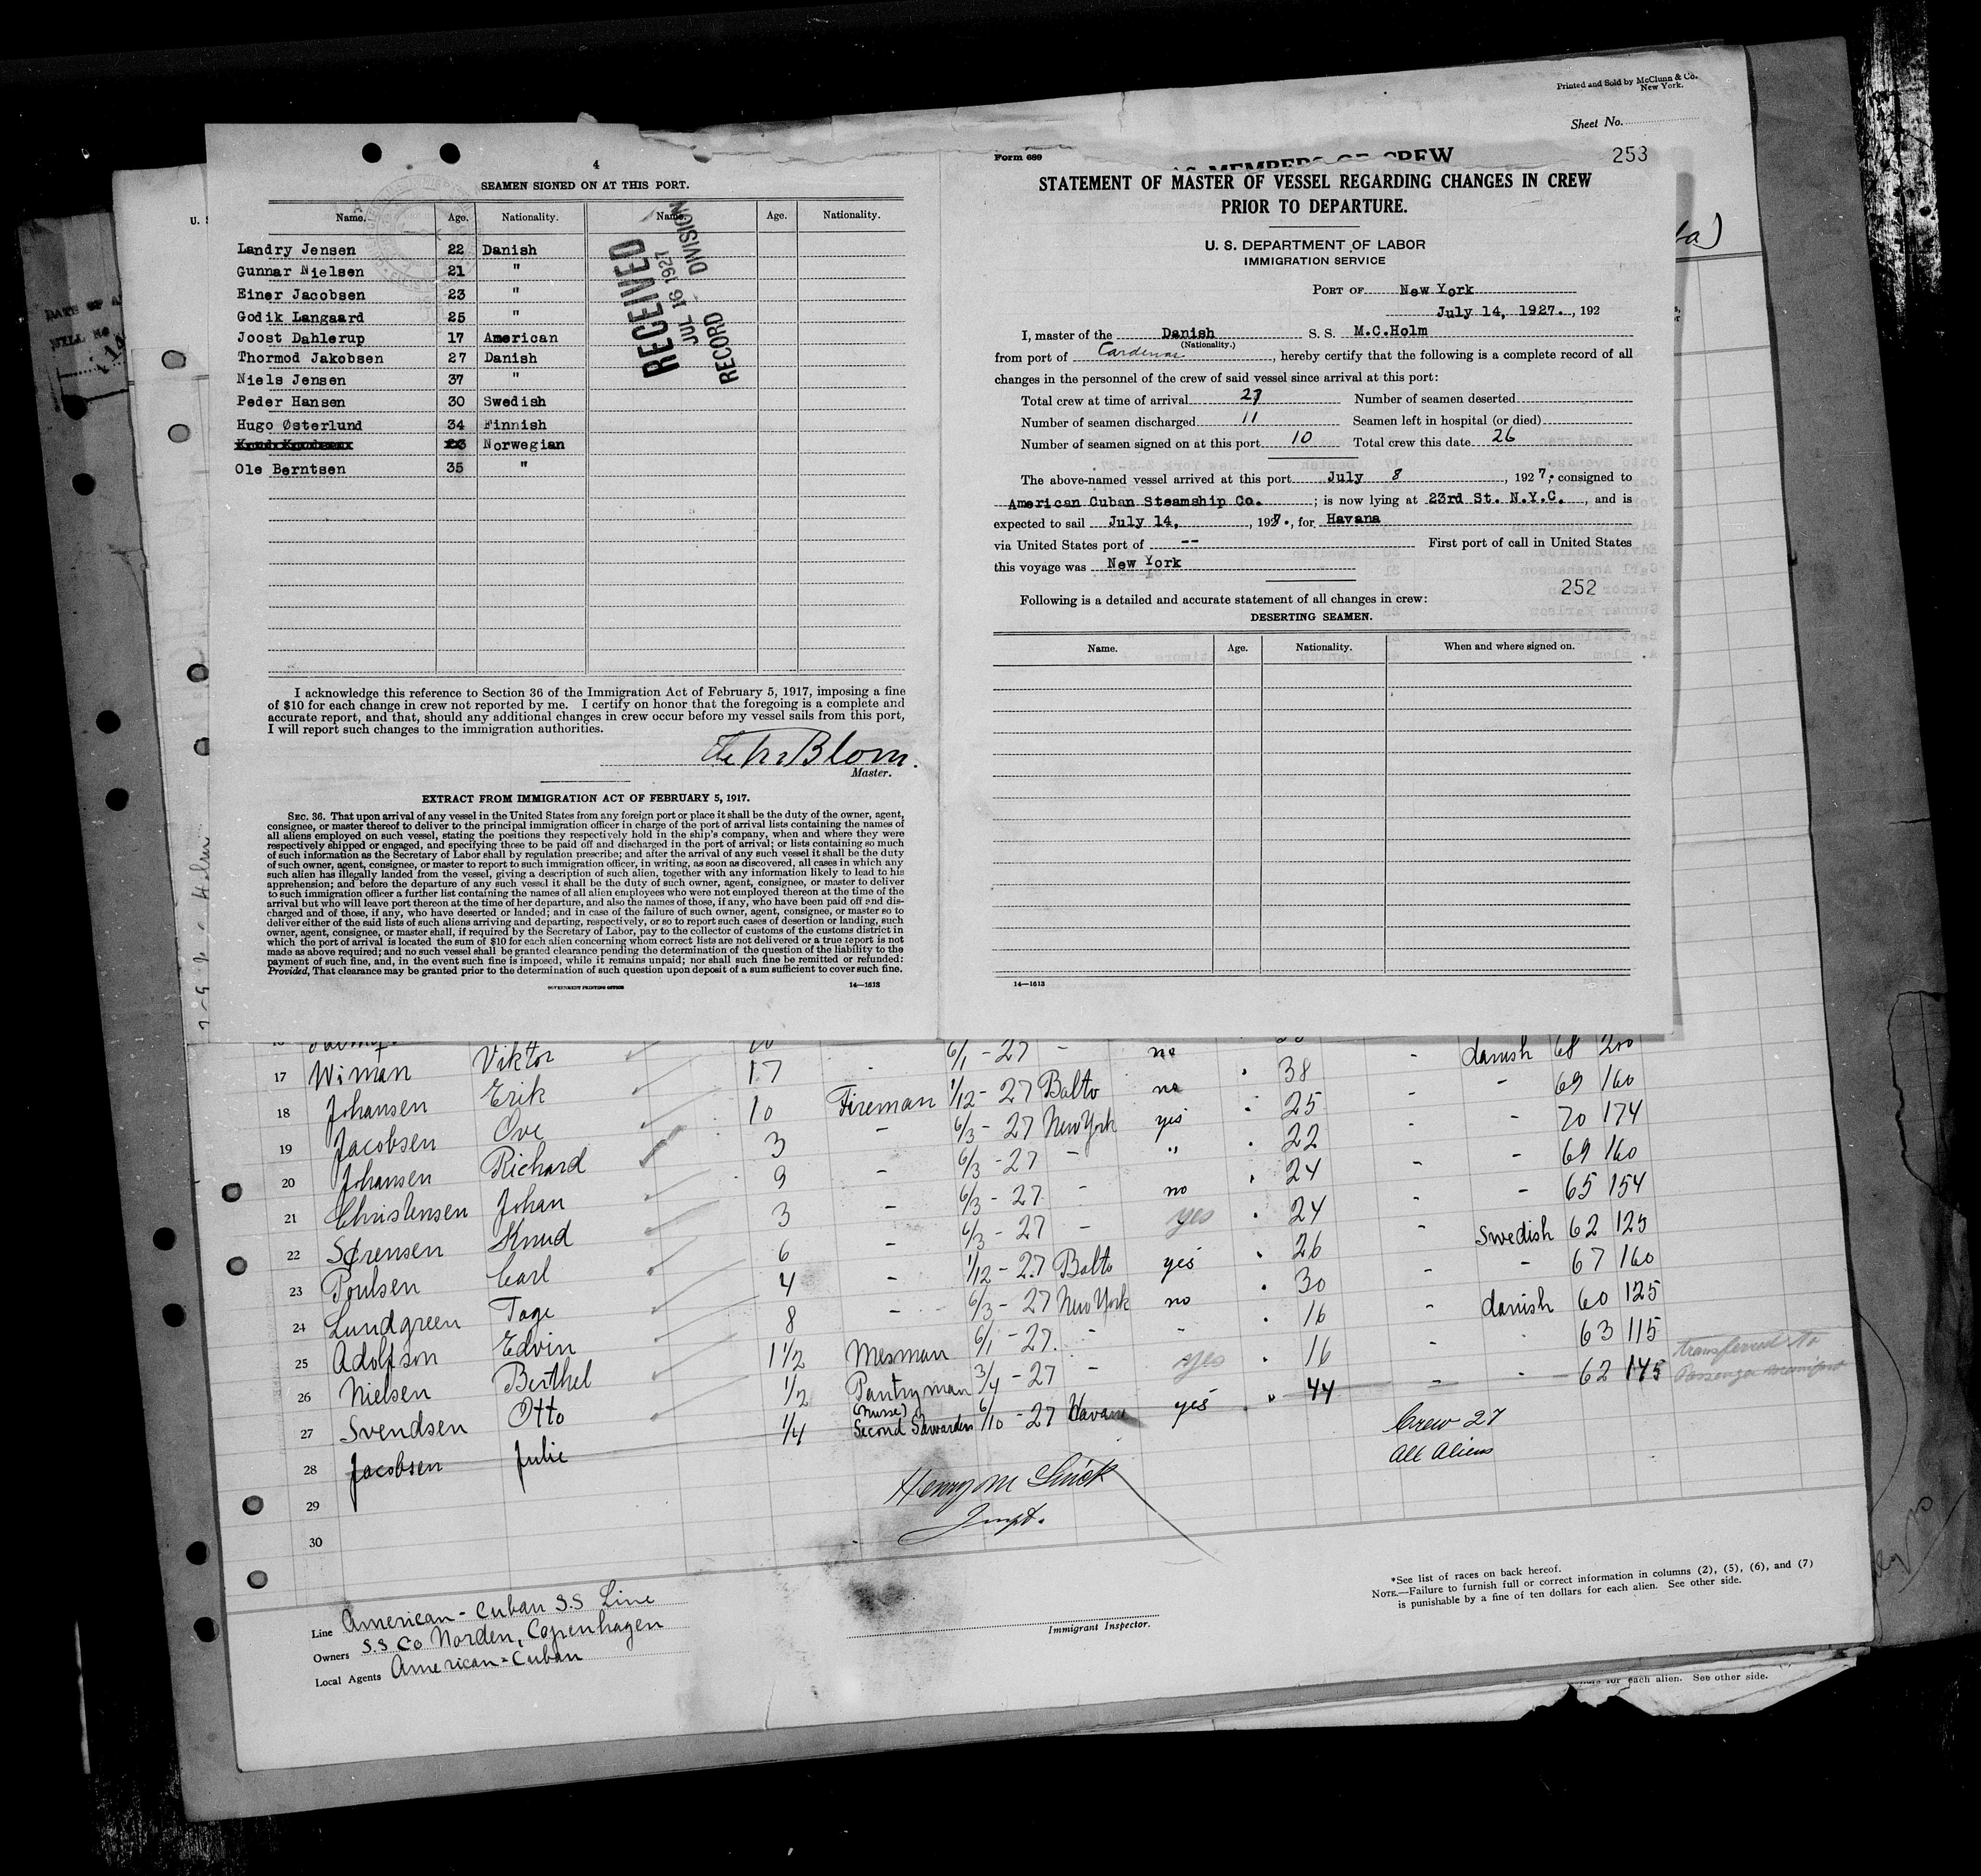 Printed and Sold by McClunn & Co.
New York.
Sheet No.
4
SEAMEN SIGNED ON AT THIS PORT.
Name. Age. Nationality. Name. Age. Nationality.
Landry Jensen 22 Danish
Gunnar Nielsen 21 "
Einer Jacobsen 23 "
Godik Langaard 25 "
Joost Dahlerup 17 American
Thormod Jakobsen 27 Danish
Niels Jensen 37 "
Peder Hansen 30 Swedish
Hugo Østerlund 34 Finnish
Norwegian
Ole Berntsen 35 "
RECEIVED
JUL 16 1927
RECORD DIVISION
I acknowledge this reference to Section 36 of the Immigration Act of February 5, 1917, imposing a fine
of $10 for each change in crew not reported by me. I certify on honor that the foregoing is a complete and
accurate report, and that, should any additional changes in crew occur before my vessel sails from this port,
I will report such changes to the immigration authorities.
Blom.
Master.
EXTRACT FROM IMMIGRATION ACT OF FEBRUARY 5, 1917.
SEC. 36. That upon arrival of any vessel in the United States from any foreign port or place it shall be the duty of the owner, agent,
consignee, or master thereof to deliver to the principal immigration officer in charge of the port of arrival lists containing the names of
all aliens employed on such vessel, stating the positions they respectively hold in the ship's company, when and where they were
respectively shipped or engaged, and specifying those to be paid off and discharged in the port of arrival; or lists containing so much
of such information as the Secretary of Labor shall by regulation prescribe; and after the arrival of any such vessel it shall be the duty
of such owner, agent, consignee, or master to report to such immigration officer, in writing, as soon as discovered, all cases in which any
such alien has illegally landed from the vessel, giving a description of such alien, together with any information likely to lead to his
apprehension; and before the departure of any such vessel it shall be the duty of such owner, agent, consignee, or master to deliver
to such immigration officer a further list containing the names of all alien employees who were not employed thereon at the time of the
arrival but who will leave port thereon at the time of her departure, and also the names of those, if any, who have been paid off and dis-
charged and of those, if any, who have deserted or landed; and in case of the failure of such owner, agent, consignee, or master so to
deliver either of the said lists of such aliens arriving and departing, respectively, or so to report such cases of desertion or landing, such
owner, agent, consignee, or master shall, if required by the Secretary of Labor, pay to the collector of customs of the customs district in
which the port of arrival is located the sum of $10 for each alien concerning whom correct lists are not delivered or a true report is not
made as above required; and no such vessel shall be granted clearance pending the determination of the question of the liability to the
payment of such fine, and, in the event such fine is imposed, while it remains unpaid; nor shall such fine be remitted or refunded:
Provided, That clearance may be granted prior to the determination of such question upon deposit of a sum sufficient to cover such fine.
GOVERNMENT PRINTING OFFICE 14—1613
Form 689
AS MEMBERS OF CREW
253
STATEMENT OF MASTER OF VESSEL REGARDING CHANGES IN CREW
PRIOR TO DEPARTURE.
U. S. DEPARTMENT OF LABOR
IMMIGRATION SERVICE
PORT OF New York
July 14, 1927. , 192
I, master of the Danish S. S. M.C.Holm
(Nationality.)
from port of Cardenas , hereby certify that the following is a complete record of all
changes in the personnel of the crew of said vessel since arrival at this port:
Total crew at time of arrival 27 Number of seamen deserted
Number of seamen discharged 11 Seamen left in hospital (or died)
Number of seamen signed on at this port 10 Total crew this date 26
The above-named vessel arrived at this port July 8 , 1927, consigned to
American Cuban Steamship Co. ; is now lying at 23rd St. N.Y.C. , and is
expected to sail July 14, , 1927., for Havana
via United States port of -- First port of call in United States
this voyage was New York
252
Following is a detailed and accurate statement of all changes in crew:
DESERTING SEAMEN.
Name. Age. Nationality. When and where signed on.
14—1613
17 Wiman Viktor 17 6/1 - 27 - no 38 danish 68 200
18 Johansen Erik 10 Fireman 1/12 - 27 Balto no 25 - 69 160
19 Jacobsen Ove 3 - 6/3 - 27 New York yes 22 - 70 174
20 Johansen Richard 9 - 6/3 - 27 - " 24 - 69 160
21 Christensen Johan 3 - 6/3 - 27 - no 24 - 65 154
22 Sørensen Knud 6 - 6/3 - 27 - yes 26 - Swedish 62 125
23 Poulsen Carl 4 - 1/12 - 27 Balto yes 30 - 67 160
24 Lundgreen Tage 8 - 6/3 - 27 New York no 16 - danish 60 125
25 Adolfson Edvin 1 1/2 Mesman 6/1 - 27. - - 16 - 63 115
26 Nielsen Berthel 1/2 Pantryman 3/4 - 27 - yes 44 - 62 145
27 Svendsen Otto 1/4 (Nurse) Second Stewardess 6/10 - 27 Havana yes
28 Jacobsen Julie
29
30
transferred to
Passenger manifest
Crew 27
All Aliens
Henry M
Inspt.
Line American - Cuban S.S Line
Owners S.S Co Norden, Copenhagen
Local Agents American - Cuban
Immigrant Inspector.
*See list of races on back hereof.
NOTE.—Failure to furnish full or correct information in columns (2), (5), (6), and (7)
is punishable by a fine of ten dollars for each alien. See other side.
for each alien. See other side.